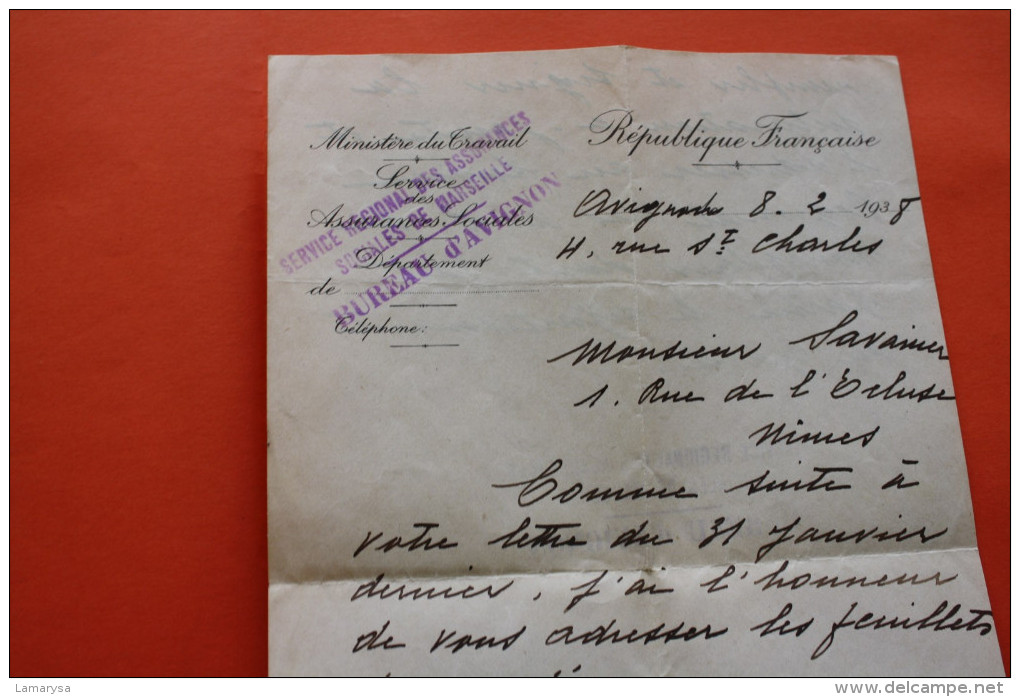 République Française
Ministère du Travail
Service
des
Assurances Sociales
Département
de
Téléphone:
SERVICE RÉGIONAL DES ASSURANCES
SOCIALES DE MARSEILLE
BUREAU d'AVIGNON
Avignon 8.2 1938
4, rue St Charles
Monsieur Savanier
1. Rue de l'Ecluse
Nimes
Comme suite à
votre lettre du 31 Janvier
dernier, j'ai l'honneur
de vous adresser les feuillets
Lamarysa
www.delcampe.net